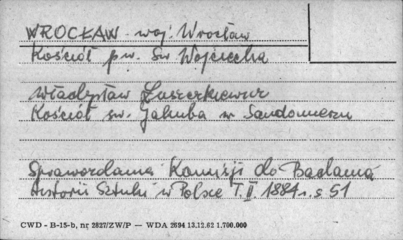 WROCŁAW woj. Wrocław
Kościół p.w. św Wojciecha
Władysław Łuszczkiewicz
Kościół św. Jakuba w Sandomierzu
Sprawozdania Komisji do Badania
Historii Sztuki w Polsce T. II 1884 r. s 51
CWD - B-15-b, nr 2827/ZW/P — WDA 2694 13.12.62 1.700.000